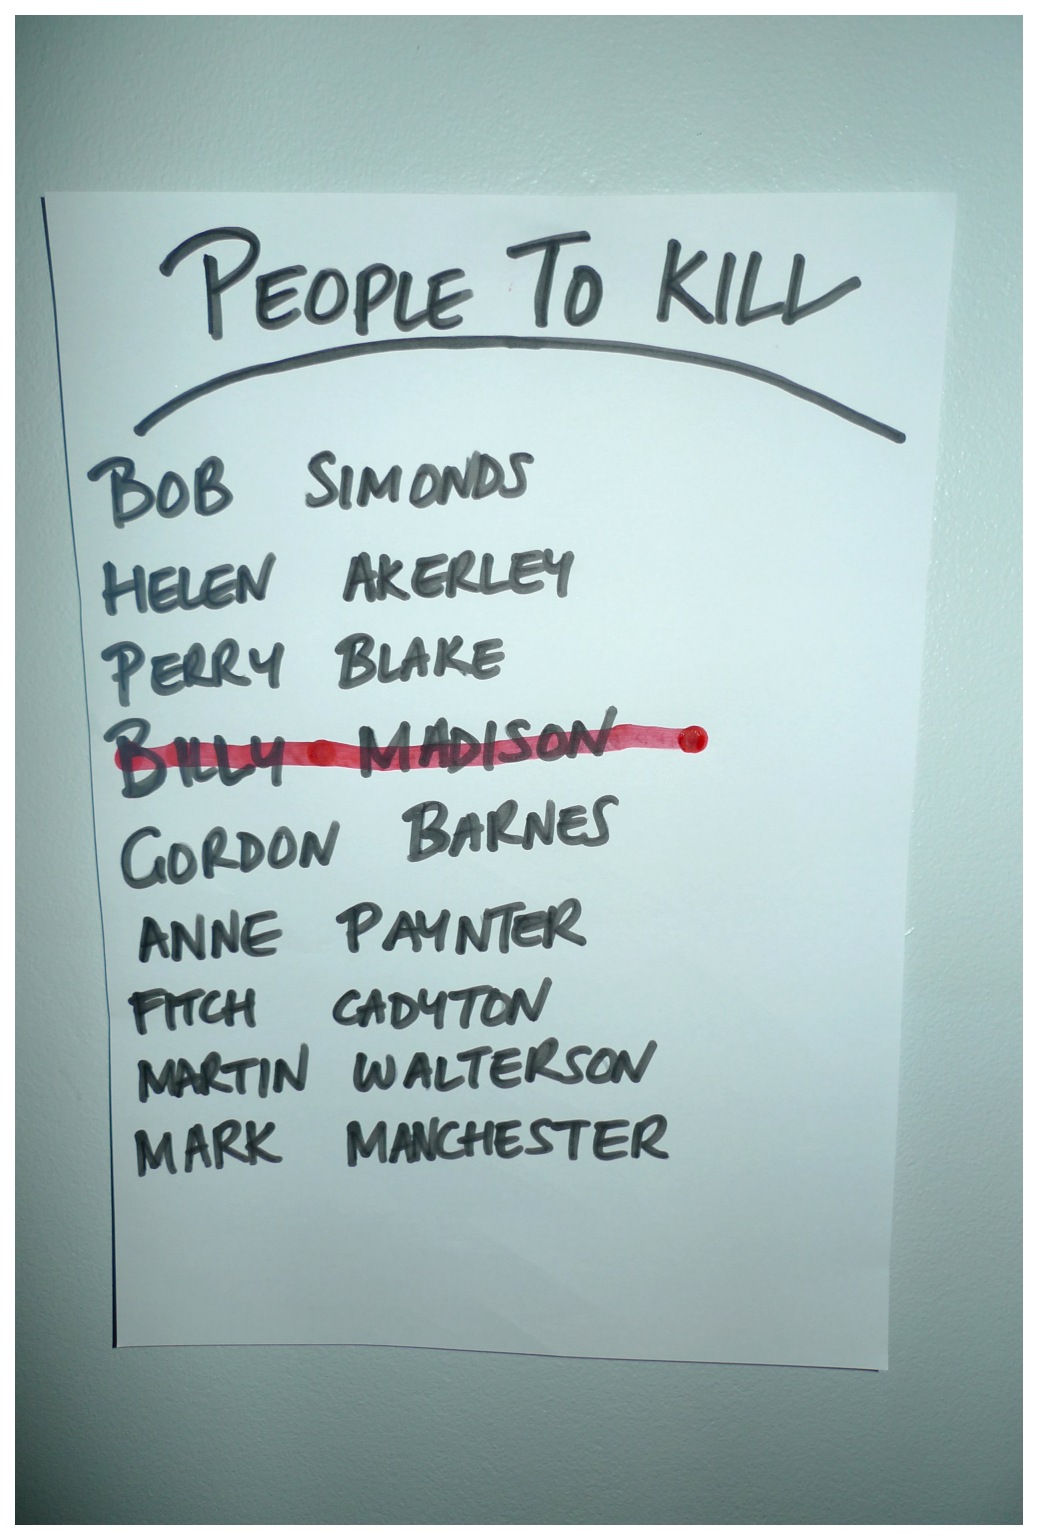 PEOPLE TO KILL
BOB SIMONDS
HELEN AKERLEY
PERRY BLAKE
BILLY MADISON
GORDON BARNES
ANNE PAYNTER
FITCH CADYTON
MARTIN WALTERSON
MARK MANCHESTER